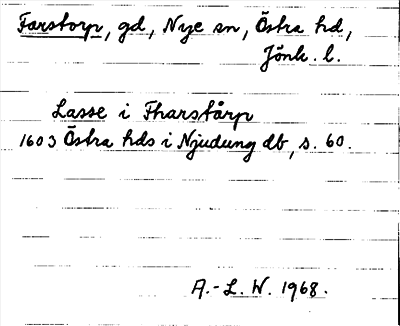 Farstorp, gd, Nye sn, Östra hd,
Jönk. l.
Lasse i Fharstårp
1603 Östra hds i Njudung db, s. 60.
A.-L. W. 1968.